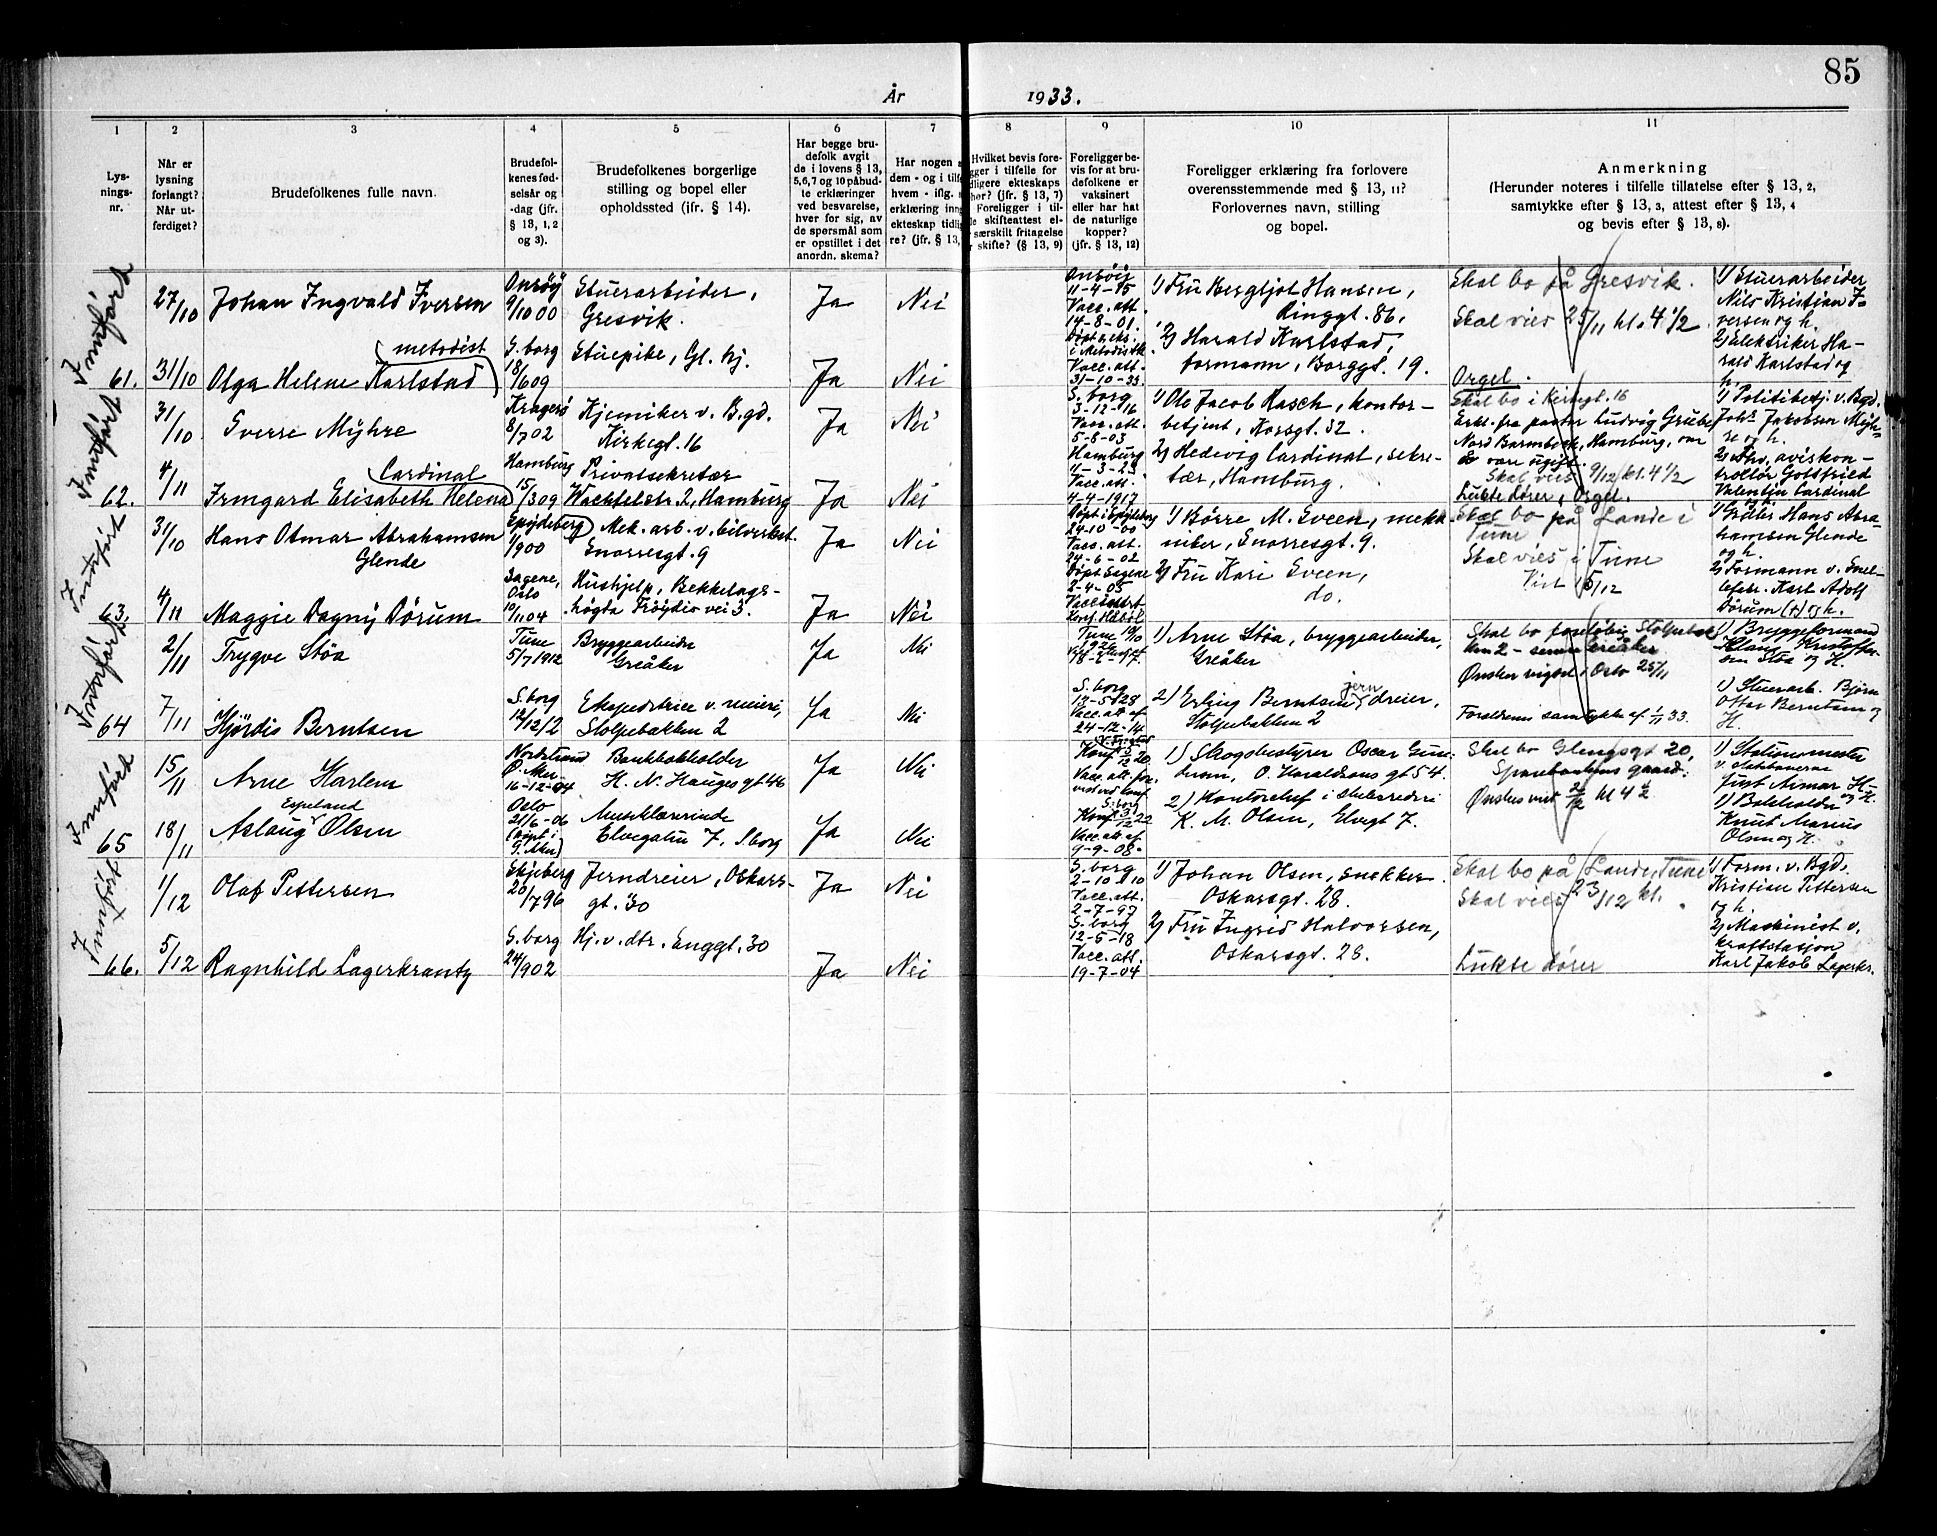 85
År 1933.
1 2 3 4 5 6 7 8 9 10 11
Lys-
nings-
nr.
Når er
lysning
forlangt?
Når ut-
ferdiget?
Brudefolkenes fulle navn.
Brudefol-
kenes fød-
selsår og
-dag (jfr.
§ 13, 1, 2
og 3).
Brudefolkenes borgerlige
stilling og bopel eller
opholdssted (jfr. § 14).
Har begge bru-
defolk avgit
de i lovens § 13,
5,6,7 og 10 påbud-
te erklæringer
ved besvarelse,
hver for sig, av
de spørsmål som
er opstillet i det
anordn. skema?
Har nogen
dem - og i tilf
hvem - iflg.
erklæring inng
ekteskap tidli
re? (jfr. § 13,
Hvilket bevis fore-
gger i tilfelle for
dligere ekteskaps
hør? (jfr. § 13, 7)
Foreligger i til-
le skifteattest el-
særskilt fritagelse
skifte? (§ 13, 9)
Foreligger be-
vis for at bru-
defolkene er
vaksinert
eller har hat
de naturlige
kopper?
(jfr. § 13, 12)
Foreligger erklæring fra forlovere
overensstemmende med § 13, 11?
Forlovernes navn, stilling
og bopel.
Anmerkning
(Herunder noteres i tilfelle tillatelse efter § 13, 2,
samtykke efter § 13, 3, attest efter § 13, 4
og bevis efter § 13, 8).
Innført
61.
27/10
Johan Ingvald Iversen
Onsøy
9/10 00
Stuerarbeider,
Gresvik.
Ja
Nei
Onsøy
11-4-15
Vacc. att.
14-8-01.
1) Fru Bergljot Hansen,
Ringgt. 86.
Skal bo på Gresvik.
Skal vies 25/11 kl. 4 1/2
1) Stuerarbeider
Nils Kristian I-
versen og h.
31/10
(metodist
Olga Helene Karlstad)
S.borg
18/6 09
Stuepike, Gl. hj.
Ja
Nei
i Metodistk.
Vacc. att.
31-10-33
2) Harald Karlstad,
formann, Borggt. 19.
Orgel.
2) Elektriker Ha-
rald Karlstad og
h.
Innført
62.
31/10
Sverre Myhre
Kragerø
8/7 02
Kjemiker v. B.gd.
Kirkegt. 16
Ja
Nei
S. borg
3-12-16
Vacc. att.
5-8-03
1) Ole Jacob Rasch, kontor-
betjent, Korsgt. 32.
Skal bo i Kirkegt. 16
Erkl. fra pastor Ludvig Griebe
Nord Barmbeck, Hamburg, om
å være ugift.
1) Politibetj. v. Bgd.
Johs Jakobsen Myh-
re og h.
4/11
(Cardinal
Irmgard Elisabeth Helena)
Hamburg
15/3 09
Privatsekretær
Wachtelstr. 2, Hamburg
Ja
Nei
Hamburg
4-3-23
Vacc. att.
4-4-1917
2) Hedevig Cardinal, sekre-
tær, Hamburg.
Skal vies 9/12 kl. 4 1/2
Lukte dører, Orgel.
2) Ahv. aviskon-
trollør Gottfried
Valentin Cardinal
Innført
63.
31/10
Hans Otmar Abrahamsen
Glende
Spydeberg
1/9 00
Mek. arb. v. bilverkst.
Snorresgt. 9
Ja
Nei
24-10-00
Vacc. att.
24-6-02
1) Børre M. Sveen, mekk-
niker, Snorresgt. 9.
Skal bo på Lande i
Tune
Skal vies i Tune
Viet 15/12
1) Gråbr. Hans Abra-
hamsen Glende
og h.
4/11
Maggie Dagny Dørum
Sagene,
Oslo
10/11 04
Hushjelp, Bekkelags-
høgta Frøydis vei 3.
Ja
Nei
Døpt Sagene
2-4-05
2) Fru Kari Sveen,
do.
2) Formann v. Smel-
Karl Adolf
Dørum (+) og h.
Innført
64
2/11
Trygve Støa
Tune
5/7 1912
Bryggearbeider
Greåker
Ja
Nei
Tune
18-6-17.
1) Arne Støa, bryggearbeider,
Greåker
Skal bo foreløbig Stolpebak
ken 2 - senere Greåker
Ønsker vigsel i Oslo 25/11
1) Bryggeformand
Klaus Kristoffer-
sen Støa og H.
7/11
Hjördis Berntsen
S.borg
12/12 12
Ekspeditrice v. meieri,
Stolpebakken 2
Ja
Nei
S. borg
17-5-28
Vacc. att af
24-12-14
2) Erling Berntsen, jern dreier,
Stolpebakken 2
Foreldrenes samtykke af 1/11 33.
1) Stuerarb. Bjørn
Ottar Berntsen og
H.
Innført
65
15/11
Arne Harlem
Nordstrand
Ø. Aker
16-12-04
Bankbokholder
H. N. Hauges gt 46
Ja
Nei
Vacc. att. for.
1) Skogbestyrer Oscar Gun-
dersen, O. Haraldsons gt 54.
Skal bo Glengsgt 20,
Sparebankens gaard.
Ønskes viet 22/12 kl 4 1/2
1) Stationsmester
v. Statsbanerne
Just Aimar H.
og H.
18/11
Espeland
Aslaug Olsen
Oslo
21/6-06
(døpt i
Ø. Aker)
Musiklærerinde
Elvegaten 7, S.borg
Ja
Nei
S.borg
Vacc. att af
9-9-08.
2) Kontorchef i skibsrederi
K. M. Olsen, Elvegt 7.
1) Bokholder
Knut Marius
Olsen og H.
Innført
66.
1/12
Olaf Pettersen
Skjeberg
20/7 96
Jerndreier, Oskars-
gt. 30
Ja
Nei
S. borg
2-10-10
Vacc. att.
2-7-97
1) Johan Olsen, snekker.
Oskarsgt. 28.
Skal bo på Lande, Tune
Skal vies 23/12 kl.
1) Form. v. Bgd.
Kristian Pettersen
og h.
5/12
Ragnhild Lagerkrantz
S. borg
24/9 02
Hj. v. dtr. Enggt. 30
Ja
Nei
S. borg
12-5-18
Vacc. att.
19-7-04
2) Fru Ingrid Halvorsen,
Oskarsgt. 28.
Lukte dører
2) Maskinist v.
kraftstasjon
Karl Jakob Lagerkr.